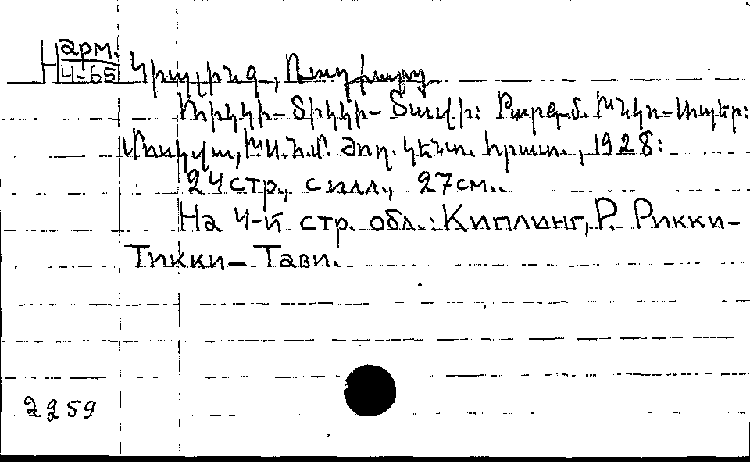 Н арм.
4-65
Կիպլինգ, Ռադիարդ
Ռիկկի-Տիկկի-Տավի: Թարգմ.
Մոսկվա, ԽՍՀՄ Ժող. կենտ. հրատ., 1928:
24 стр., с илл., 27см..
На 4-й стр. обл.: Киплинг, Р. Рикки-
Тикки-Тави.
2259